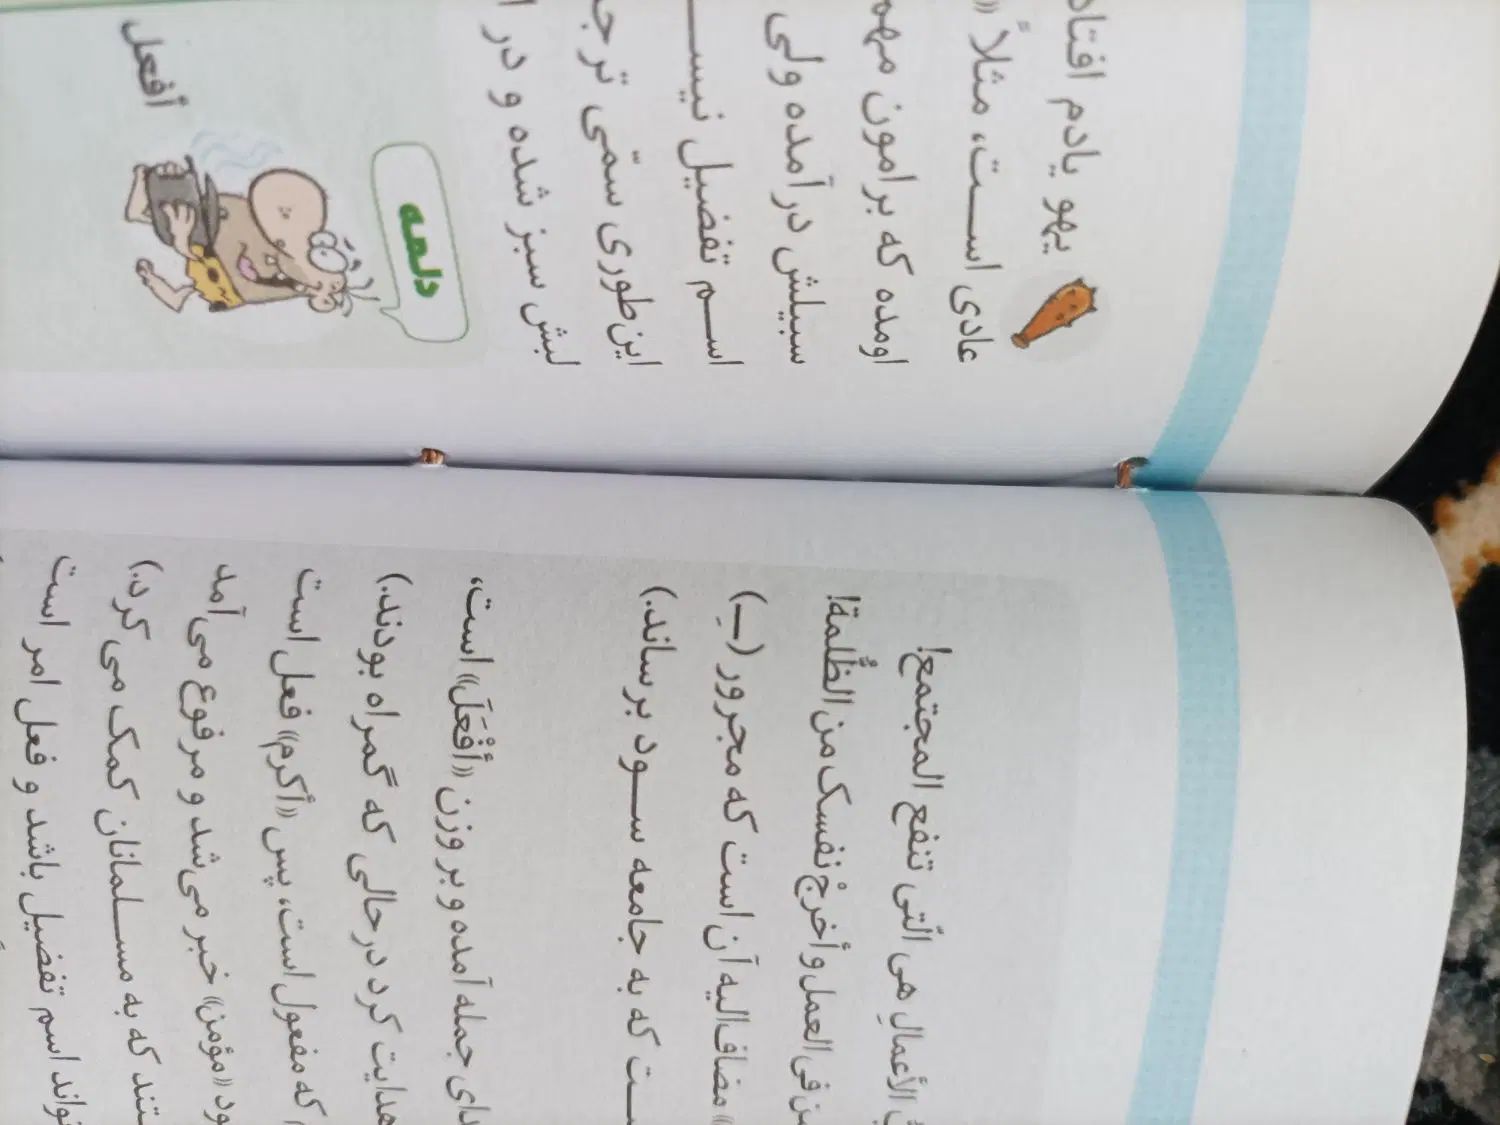 یهو یادم افتاد
عادی است، مثلاً «
اومده که برامون مهم
سبیلش درآمده ولی
اسم تفضیل نیست
این‌طوری سمّی ترج
لبش سبز شده و در ا
دلمه
أفعل
الأعمالِ هی الّتی تنفع المجتمع!
فی العمل و أخرجْ نفسک من الظُّلمة!
» مضاف‌الیه آن است که مجرور (ـِ)
ست که به جامعه سود برساند.)
دای جمله آمده و بر وزن «أَفْعَلَ» است،
هدایت کرد درحالی که گمراه بودند.)
که مفعول است، پس «أکرم» فعل است
ود «مؤمن» خبر می‌شد و مرفوع می‌آمد
تند که به مسلمانان کمک می‌کرد.)
تواند اسم تفضیل باشد و فعل امر است